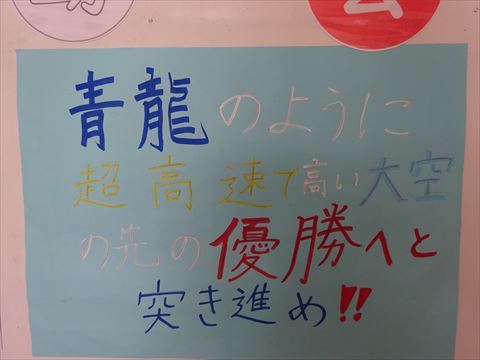 青龍のように
超高速で高い大空
の先の優勝へと
突き進め!!